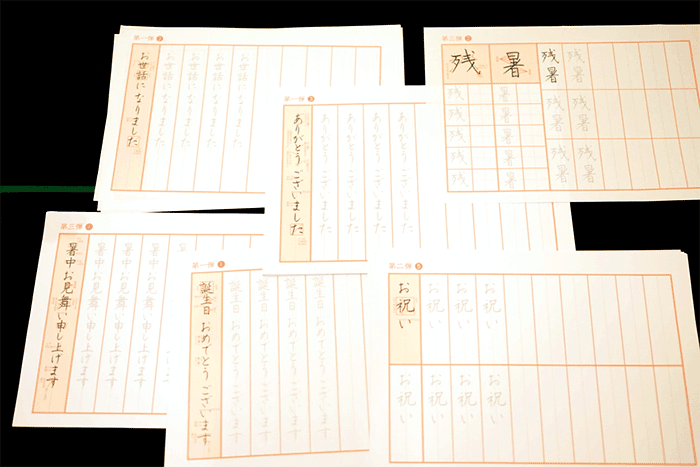 第一弾❷
お世話になりました
お世話になりました
お世話になりました
お世話になりました
お世話になりました
第三弾
残 暑
残 暑
残 暑
残 暑
残 暑
残 暑
残暑
残暑
残暑
残暑
残暑
残暑
第一弾❸
ありがとうございました
ありがとうございました
ありがとうございました
ありがとうございました
ありがとうございました
第三弾
暑中お見舞い申し上げます
暑中お見舞い申し上げます
暑中お見舞い申し上げます
暑中お見舞い申し上げます
暑
第一弾❶
誕生日おめでとうございます
誕生日おめでとうございます
誕生日おめでとうございます
誕生日おめでとうございます
誕生日おめでとうございます
第二弾❺
お祝い
お祝い
お祝い
お祝い
お祝い
お祝い
お祝い
お祝い